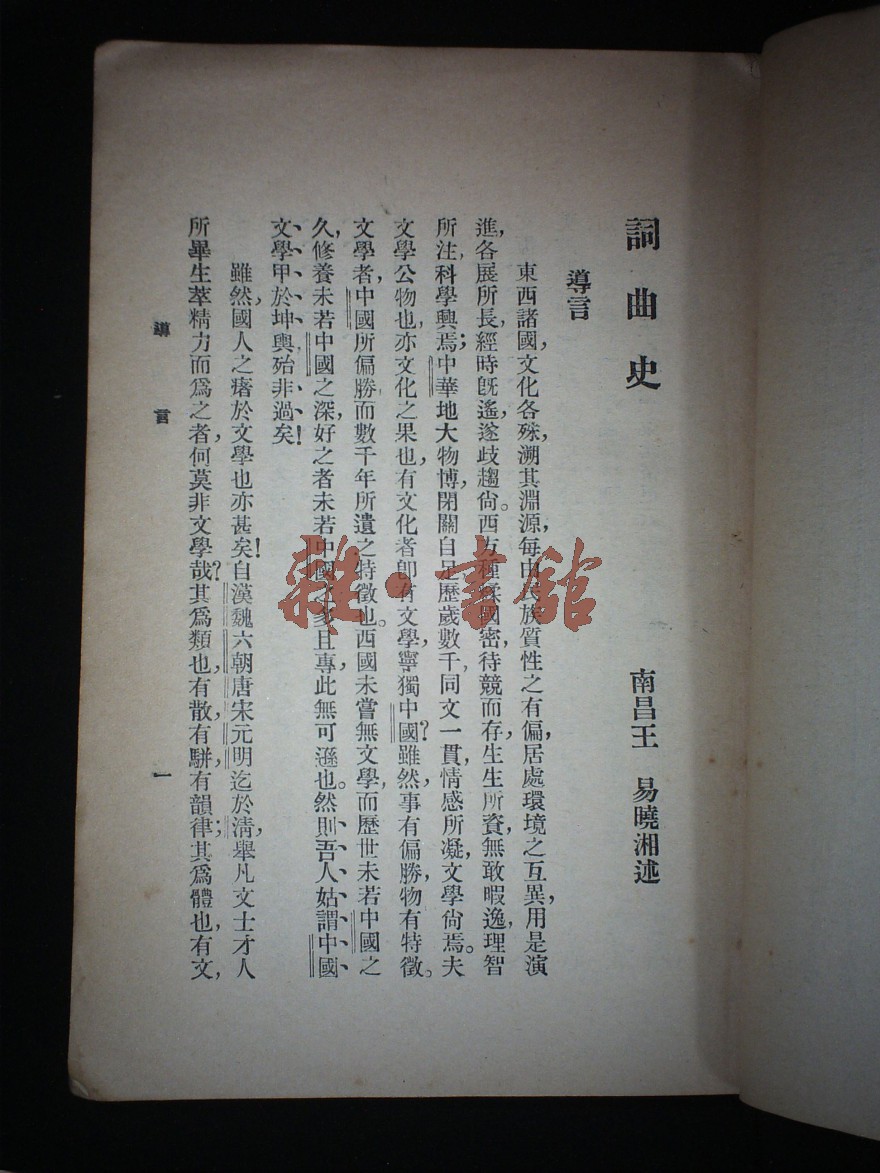 詞曲史
南昌王 易曉湘述
導言
東西諸國，文化各殊，溯其淵源，每由民族質性之有偏，居處環境之互異，用是演
進，各展所長，經時旣遙，遂歧趨尙。西方種繁國密，待競而存，生生所資，無敢暇逸，理智
所注，科學興焉；中華地大物博，閉關自足，歷歲數千，同文一貫，情感所凝，文學尙焉。夫
文學公物也，亦文化之果也，有文化者卽有文學，寧獨中國？雖然，事有偏勝，物有特徵。
文學者，中國所偏勝而數千年所遺之特徵也。西國未嘗無文學，而歷世未若中國之
久，修養未若中國之深，好之者未若中國之多且專，此無可遜也。然則吾人姑謂中國
文學甲於坤輿，殆非過矣！
雖然，國人之瘏於文學也亦甚矣！自漢魏六朝唐宋元明迄於淸，舉凡文士才人
所畢生萃精力而爲之者，何莫非文學哉？其爲類也，有散有駢，有韻律；其爲體也，有文，
導言
一
雜·書館